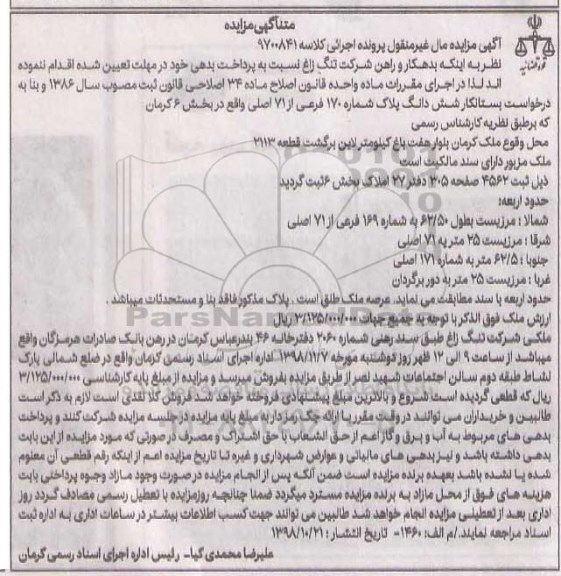 متن آگهی مزایده
آگهی مزایده مال غیرمنقول پرونده اجرائی کلاسه ۹۷۰۰۸۴۱
نظر به اینکه بدهکار و راهن شرکت تنگ زاغ نسبت به پرداخت بدهی خود در مهلت تعیین شده اقدام ننموده
اند لذا در اجرای مقررات ماده واحده قانون اصلاح ماده ۳۴ اصلاحی قانون ثبت مصوب سال ۱۳۸۶ و بنا به
درخواست بستانکار شش دانگ پلاک شماره ۱۷۰ فرعی از ۷۱ اصلی واقع در بخش ۶ کرمان
که بر طبق نظریه کارشناس رسمی
محل وقوع ملک کرمان بلوار هفت باغ کیلومتر لاین برگشت قطعه ۲۱۱۳
ملک مزبور دارای سند مالکیت است
ذیل ثبت ۴۵۶۲ صفحه ۳۰۵ دفتر ۲۷ املاک بخش ۶ ثبت گردید
حدود اربعه:
شمالا : مرزیست بطول ۶۲/۵۰ به شماره ۱۶۹ فرعی از ۷۱ اصلی
شرقا : مرزیست ۲۵ متر به ۷۱ اصلی
جنوبا : ۶۲/۵ متر به شماره ۱۷۱ اصلی
غربا : مرزیست ۲۵ متر به دور برگردان
حدود اربعه با سند مطابقت می نماید. عرصه ملک طلق است . پلاک مذکور فاقد بنا و مستحدثات میباشد .
ارزش ملک فوق الذکر با توجه به جمیع جهات ۳/۱۲۵/۰۰۰/۰۰۰ ریال
ملکی شرکت تنگ زاغ طبق سند رهنی شماره ۲۰۶۰ دفترخانه ۴۶ بندرعباس کرمان در رهن بانک صادرات هرمزگان واقع
میباشد از ساعت ۹ الی ۱۲ ظهر روز دوشنبه مورخه ۱۳۹۸/۱۱/۷ اداره اجرای اسناد رسمی کرمان واقع در ضلع شمالی پارک
نشاط طبقه دوم سالن اجتماعات شهید نصر از طریق مزایده بفروش میرسد و مزایده از مبلغ پایه کارشناسی ۳/۱۲۵/۰۰۰/۰۰۰
ریال که قطعی گردیده است شروع و بالاترین مبلغ پیشنهادی فروخته خواهد شد فروش کلا نقدی است لازم به ذکر است
طالبین و خریداران می توانند در وقت مقرر با ارائه چک رمزدار به مبلغ پایه مزایده در جلسه مزایده شرکت کنند و پرداخت
بدهی های مربوط به آب و برق و گاز اعم از حق انشعاب یا حق اشتراک و مصرف در صورتی که مورد مزایده از این بابت
بدهی داشته باشد و نیز بدهی های مالیاتی و عوارض شهرداری و غیره تا تاریخ مزایده اعم از اینکه رقم قطعی آن معلوم
شده یا نشده باشد بعهده برنده مزایده است ضمن آنکه پس از انجام مزایده در صورت وجود مازاد وجوه پرداختی بابت
هزینه های فوق از محل مازاد به برنده مزایده مسترد میگردد ضمنا چنانچه روز مزایده با تعطیل رسمی مصادف گردد روز
اداری بعد از تعطیلی مزایده انجام خواهد شد طالبین می توانند جهت کسب اطلاعات بیشتر در ساعات اداری به اداره ثبت
اسناد مراجعه نمایند./م الف: ۱۴۶۰- تاریخ انتشار : ۱۳۹۸/۱۰/۲۱
علیرضا محمدی گیا- رئیس اداره اجرای اسناد رسمی کرمان